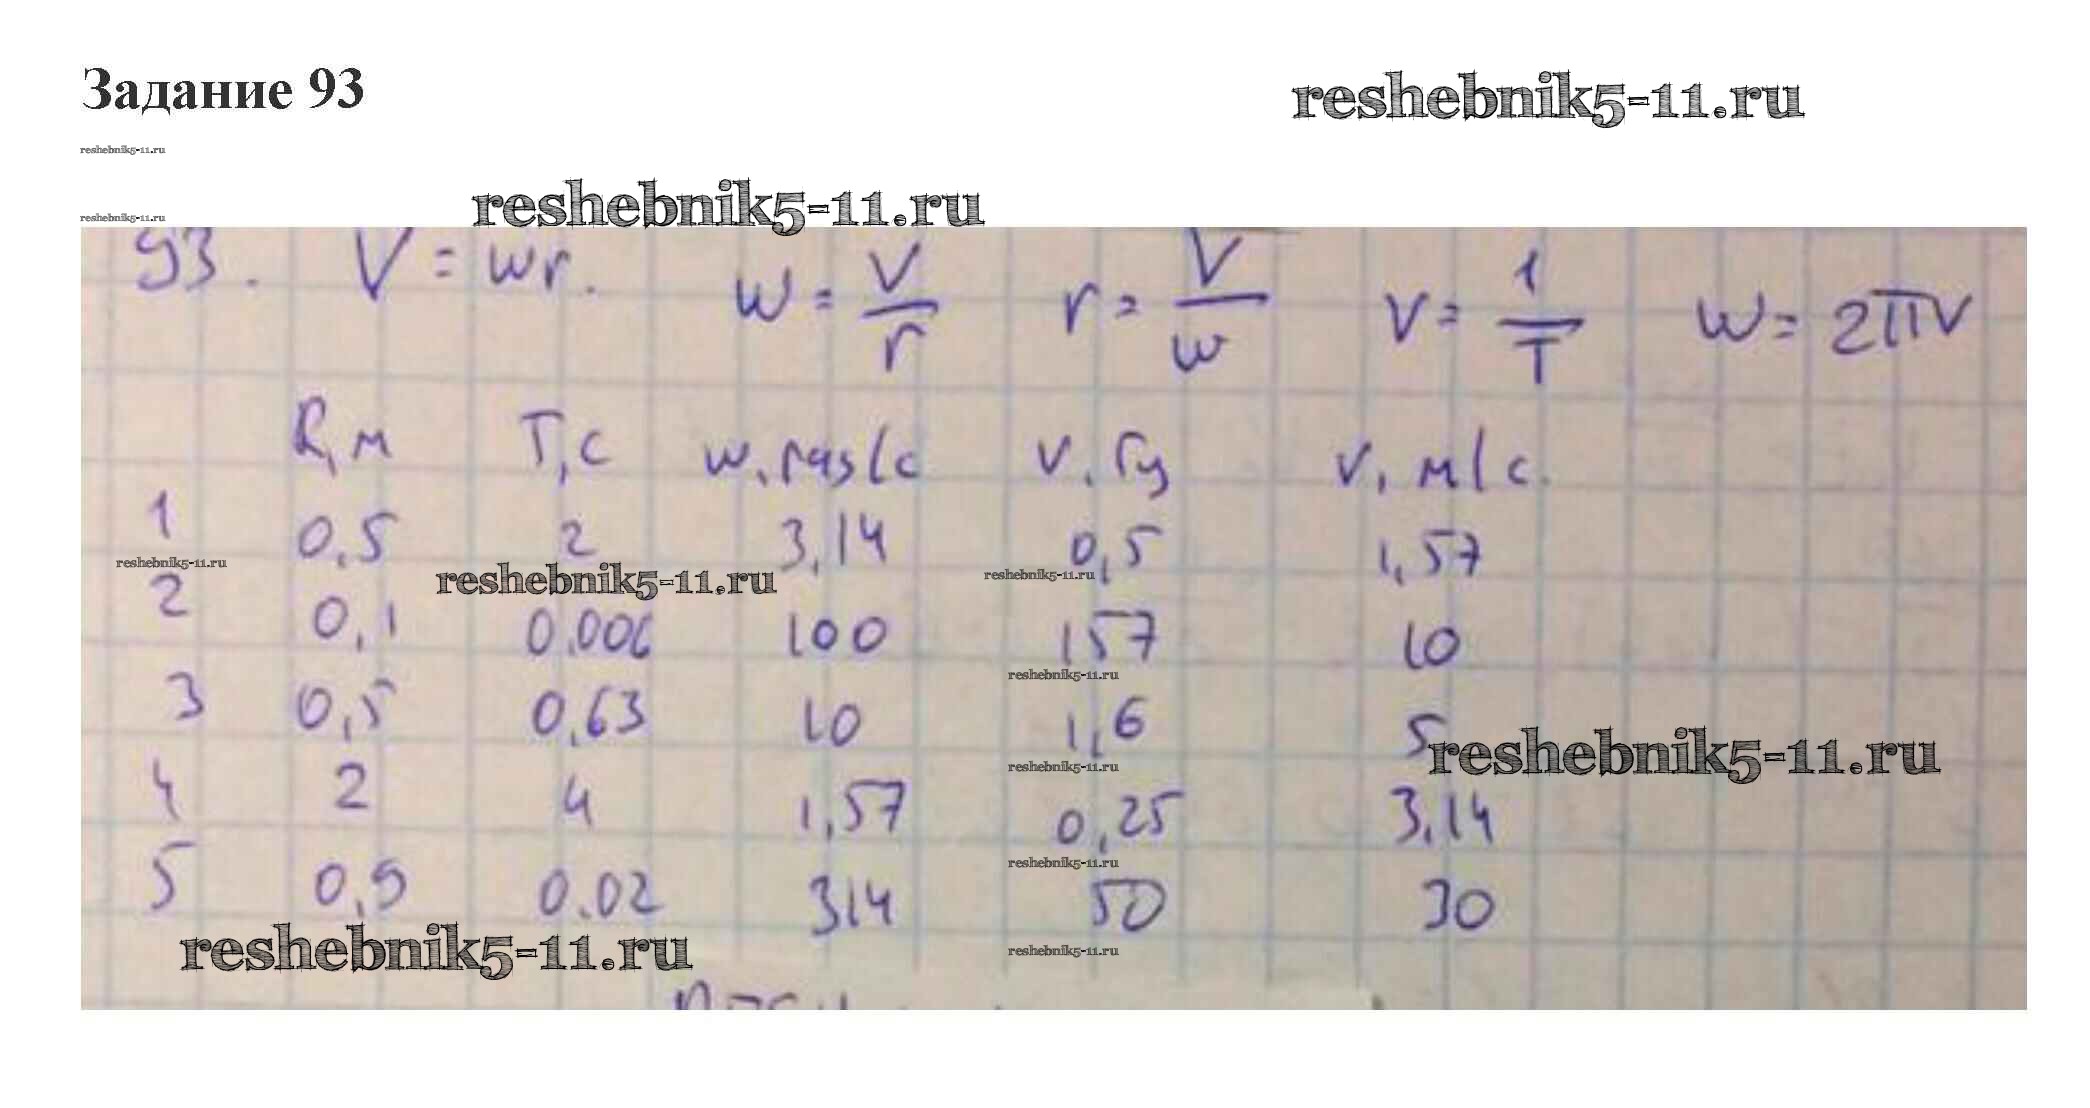 Задание 93
reshebnik5-11.ru
reshebnik5-11.ru
reshebnik5-11.ru
reshebnik5-11.ru
93. V = wr. w = V/r r = V/w ν = 1/T w = 2πν
R, м T, с w, rad/c ν, Гц v, м/с.
1 0,5 2 3,14 0,5 1,57
reshebnik5-11.ru reshebnik5-11.ru reshebnik5-11.ru
2 0,1 0.006 100 157 10
reshebnik5-11.ru
3 0,5 0,63 10 1,6 5
reshebnik5-11.ru
reshebnik5-11.ru
4 2 4 1,57 0,25 3,14
reshebnik5-11.ru
5 0,9 0.02 314 50 30
reshebnik5-11.ru
reshebnik5-11.ru